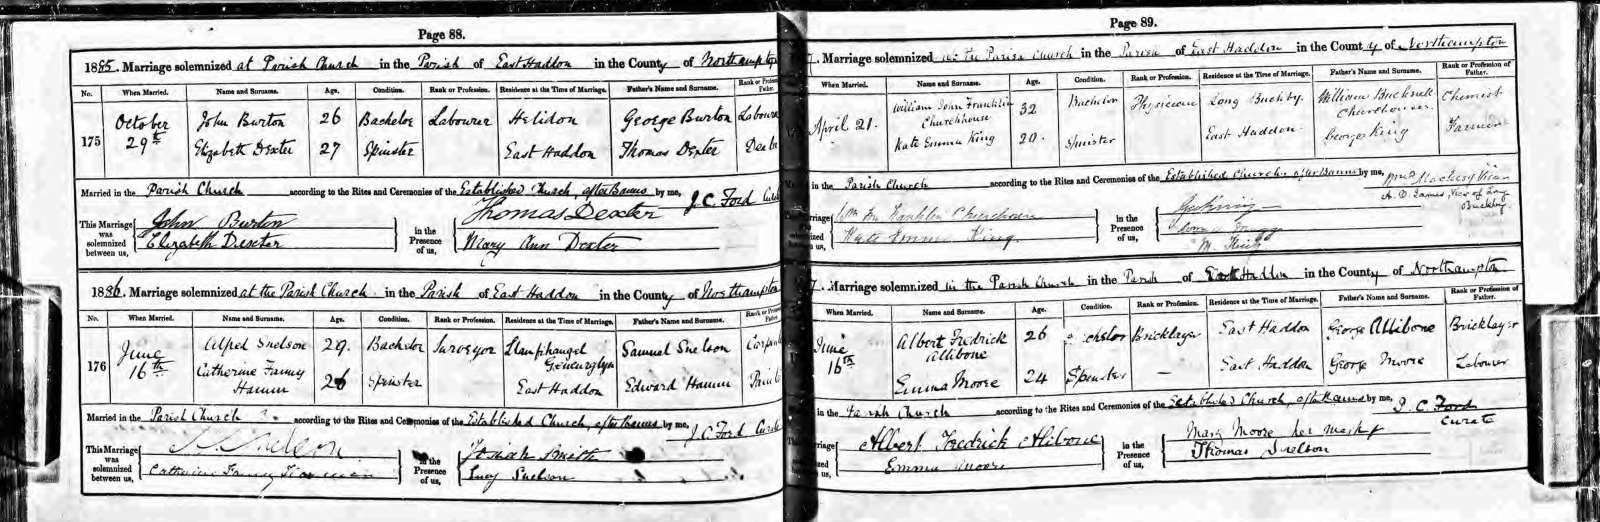 Page 88.
1885. Marriage solemnized at Parish Church in the Parish of East Haddon in the County of Northampton
No. When Married. Name and Surname. Age. Condition. Rank or Profession. Residence at the Time of Marriage. Father's Name and Surname. Rank or Profess Father.
175 October 29th John Burton 26 Bachelor Labourer Helidon George Burton Laboure
Elizabeth Dexter 27 Spinster East Haddon Thomas Dexter
Married in the Parish Church according to the Rites and Ceremonies of the Established Church, after Banns by me, J. C. Ford
This Marriage was solemnized between us, John Burton Elizabeth Dexter in the Presence of us, Thomas Dexter Mary Ann Dexter
1886. Marriage solemnized at the Parish Church in the Parish of East Haddon in the County of Northampton
No. When Married. Name and Surname. Age. Condition. Rank or Profession. Residence at the Time of Marriage. Father's Name and Surname. Rank or Father.
176 June 16th Alfred Snelson 29. Bachelor Surveyor Llanfihangel Samuel Snelson Carpen
Catherine Fanny Hamm 26 Spinster East Haddon Edward Hamm
Married in the Parish Church according to the Rites and Ceremonies of the Established Church, after Banns by me, J C Ford
This Marriage was solemnized between us, Catherine Fanny in the Presence of us, Josiah Smith Lucy Snelson
Page 89.
7. Marriage solemnized in the Parish Church in the Parish of East Haddon in the County of Northampton
When Married. Name and Surname. Age. Condition. Rank or Profession. Residence at the Time of Marriage. Father's Name and Surname. Rank or Profession of Father.
April 21. William John Franklin Churchhouse 32 Bachelor Physician Long Buckby. William Bucknell Churchouse. Chemist
Kate Emma King 20. Spinster East Haddon. George King Farmer
in the Parish Church according to the Rites and Ceremonies of the Established Church. after Banns by me, Vicar
A. D. James, Vicar of Long Buckby.
arriage nized us, Wm Jn Franklin Churchouse Kate Emma King. in the Presence of us, M. King
7. Marriage solemnized in the Parish Church in the Parish of East Haddon in the County of Northampton
When Married. Name and Surname. Age. Condition. Rank or Profession. Residence at the Time of Marriage. Father's Name and Surname. Rank or Profession of Father.
June 16th Albert Fredrick Allibone 26 Bricklayer East Haddon George Allibone Bricklayer
Emma Moore 24 Spinster — East Haddon George Moore Labourer
in the Parish Church according to the Rites and Ceremonies of the Established Church, after Banns by me, J. C. Ford Curate
rriage us, Albert Fredrick Alibone Emma Moore in the Presence of us, Mary Moore her mark Thomas Snelson